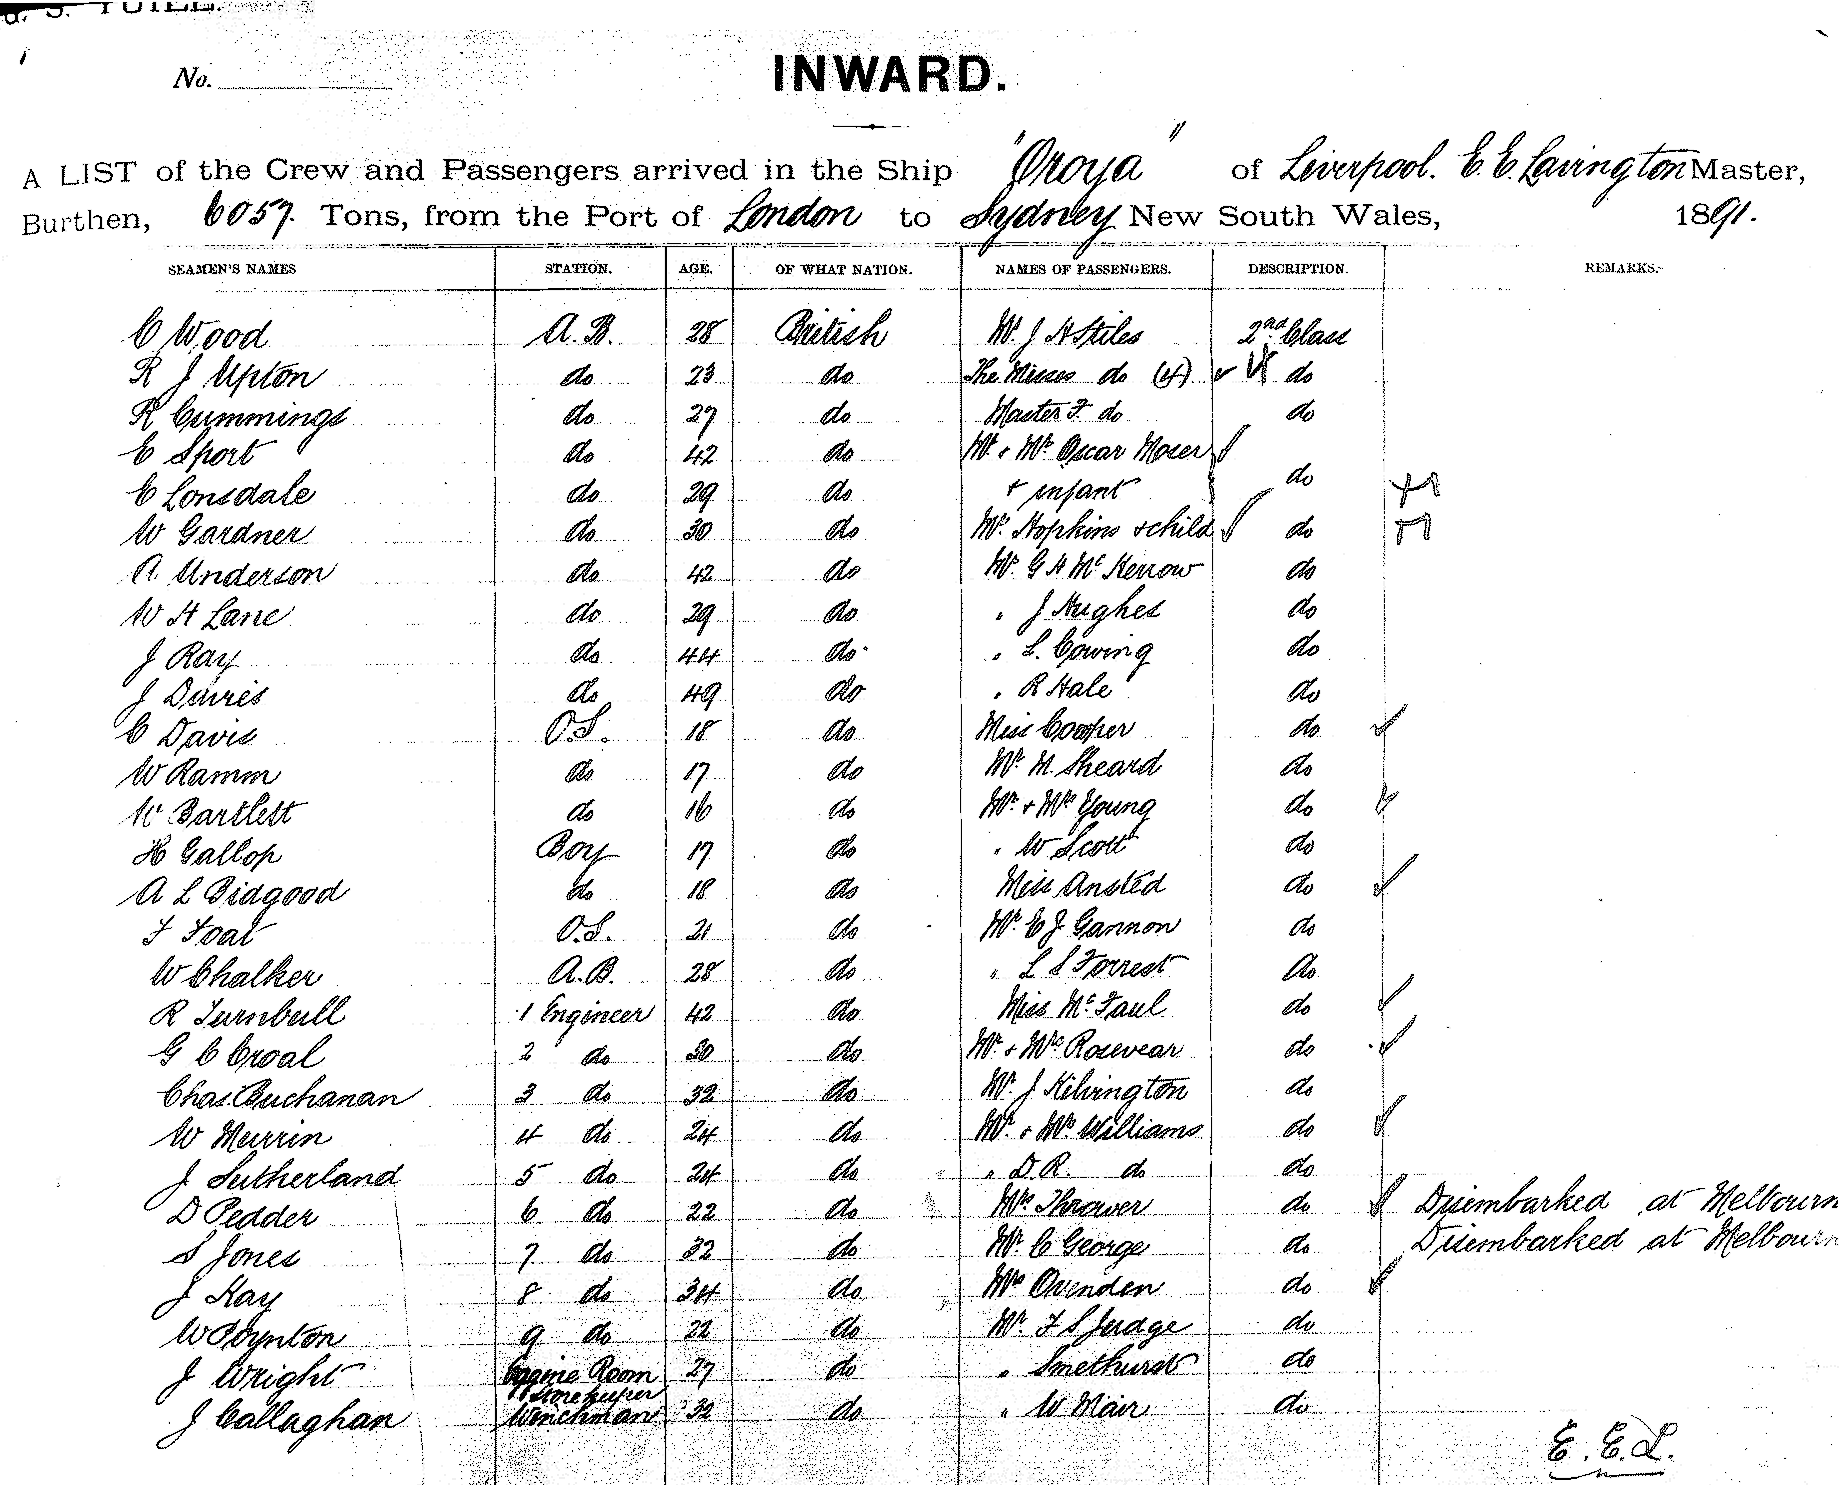 No.
INWARD.
A LIST of the Crew and Passengers arrived in the Ship "Oroya" of Liverpool. E. E. Lavington Master,
Burthen, 6057. Tons, from the Port of London to Sydney New South Wales, 1891.
SEAMEN'S NAMES STATION. AGE. OF WHAT NATION. NAMES OF PASSENGERS. DESCRIPTION. REMARKS.
C Wood A.B. 28 British Mr. J H Stiles 2nd Class
R J Upton do 23 do The Misses do (4) do
R Cummings do 27 do Master F. do do
E Sport do 42 do Mr. + Mrs Oscar Moser
E Lonsdale do 29 do + infant do
W Gardner do 30 do Mrs. Hopkins + child do
A. Underson do 42 do Mr. G H McKerrow do
W H Lane do 29 do " J Hughes do
J Ray do 44 do " L. Cowing do
J Davies do 49 do " R Hale do
C Davis O.S. 18 do Miss Cooper do
W Ramm do 17 do Mr. M. Sheard do
W Bartlett do 16 do Mr. + Mrs Young do
H Gallop Boy 17 do " W Scott do
A L Bidgood do 18 do Miss Ansted do
F Foat O.S. 21 do Mr. E J Gannon do
W Chalker A.B. 28 do " L S Forrest do
R Turnbull 1 Engineer 42 do Miss McFaul do
G C Croal 2 do 30 do Mr. + Mrs Rosevear do
Chas. Buchanan 3 do 32 do Mr. J Kilvington do
W Murrin 4 do 24 do Mr. + Mrs Williams do
J Sutherland 5 do 24 do " D.R. do do
D Pedder 6 do 22 do Mrs Thrower do Disembarked at Melbourn
S Jones 7 do 32 do Mr. C George do Disembarked at Melbourn
J Kay 8 do 34 do Mrs Ovenden do
W Poynton 9 do 22 do Mr. F S Judge do
J Wright Engine Room Storekeeper 27 do " Smethurst do
J Callaghan Winchman 32 do " W Mair do
E. E. L.